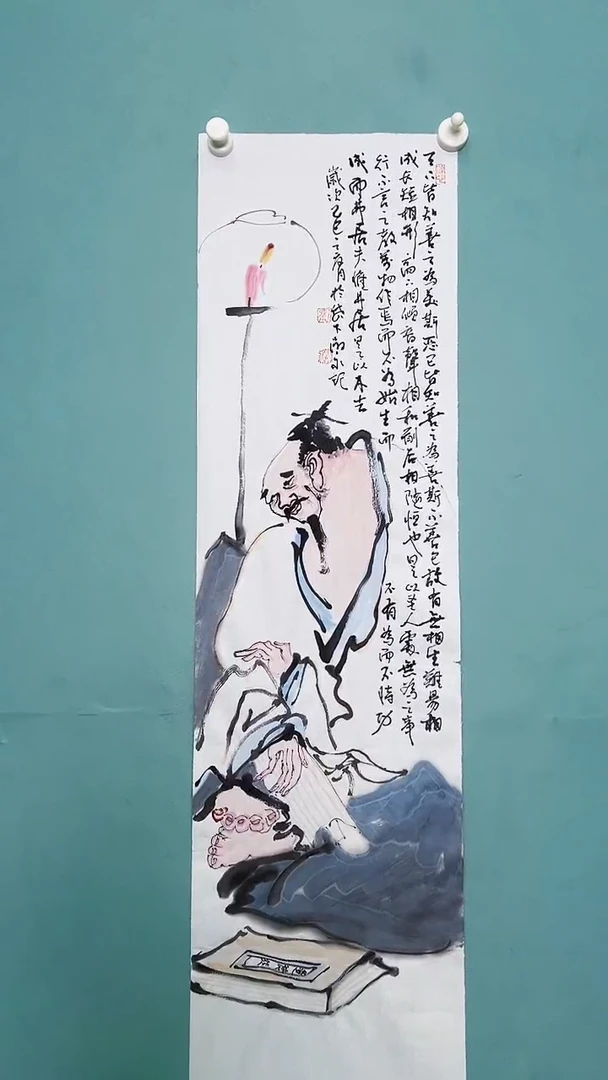 天下皆知美之為美斯恶已皆知善之為善斯不善已故有無相生難易相
成長短相形高下相傾音聲相和前后相随恒也是以圣人處無為之事
行不言之教萬物作焉而不為始生而
不有為而不恃功
成而弗居夫惟弗居是以不去
歲次乙巳之夏月於岱下